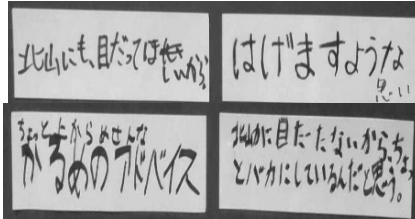 北山にも、目だってほしいから
はげますような
思い
ちょっと上からめせんな
かるめのアドバイス
北山が目だたないから、ちょっ
とバカにしているんだと思う。